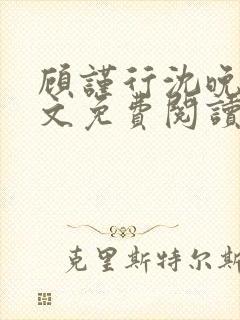 顾谨行沈晚
文免費閱讀
克里斯特尔斯